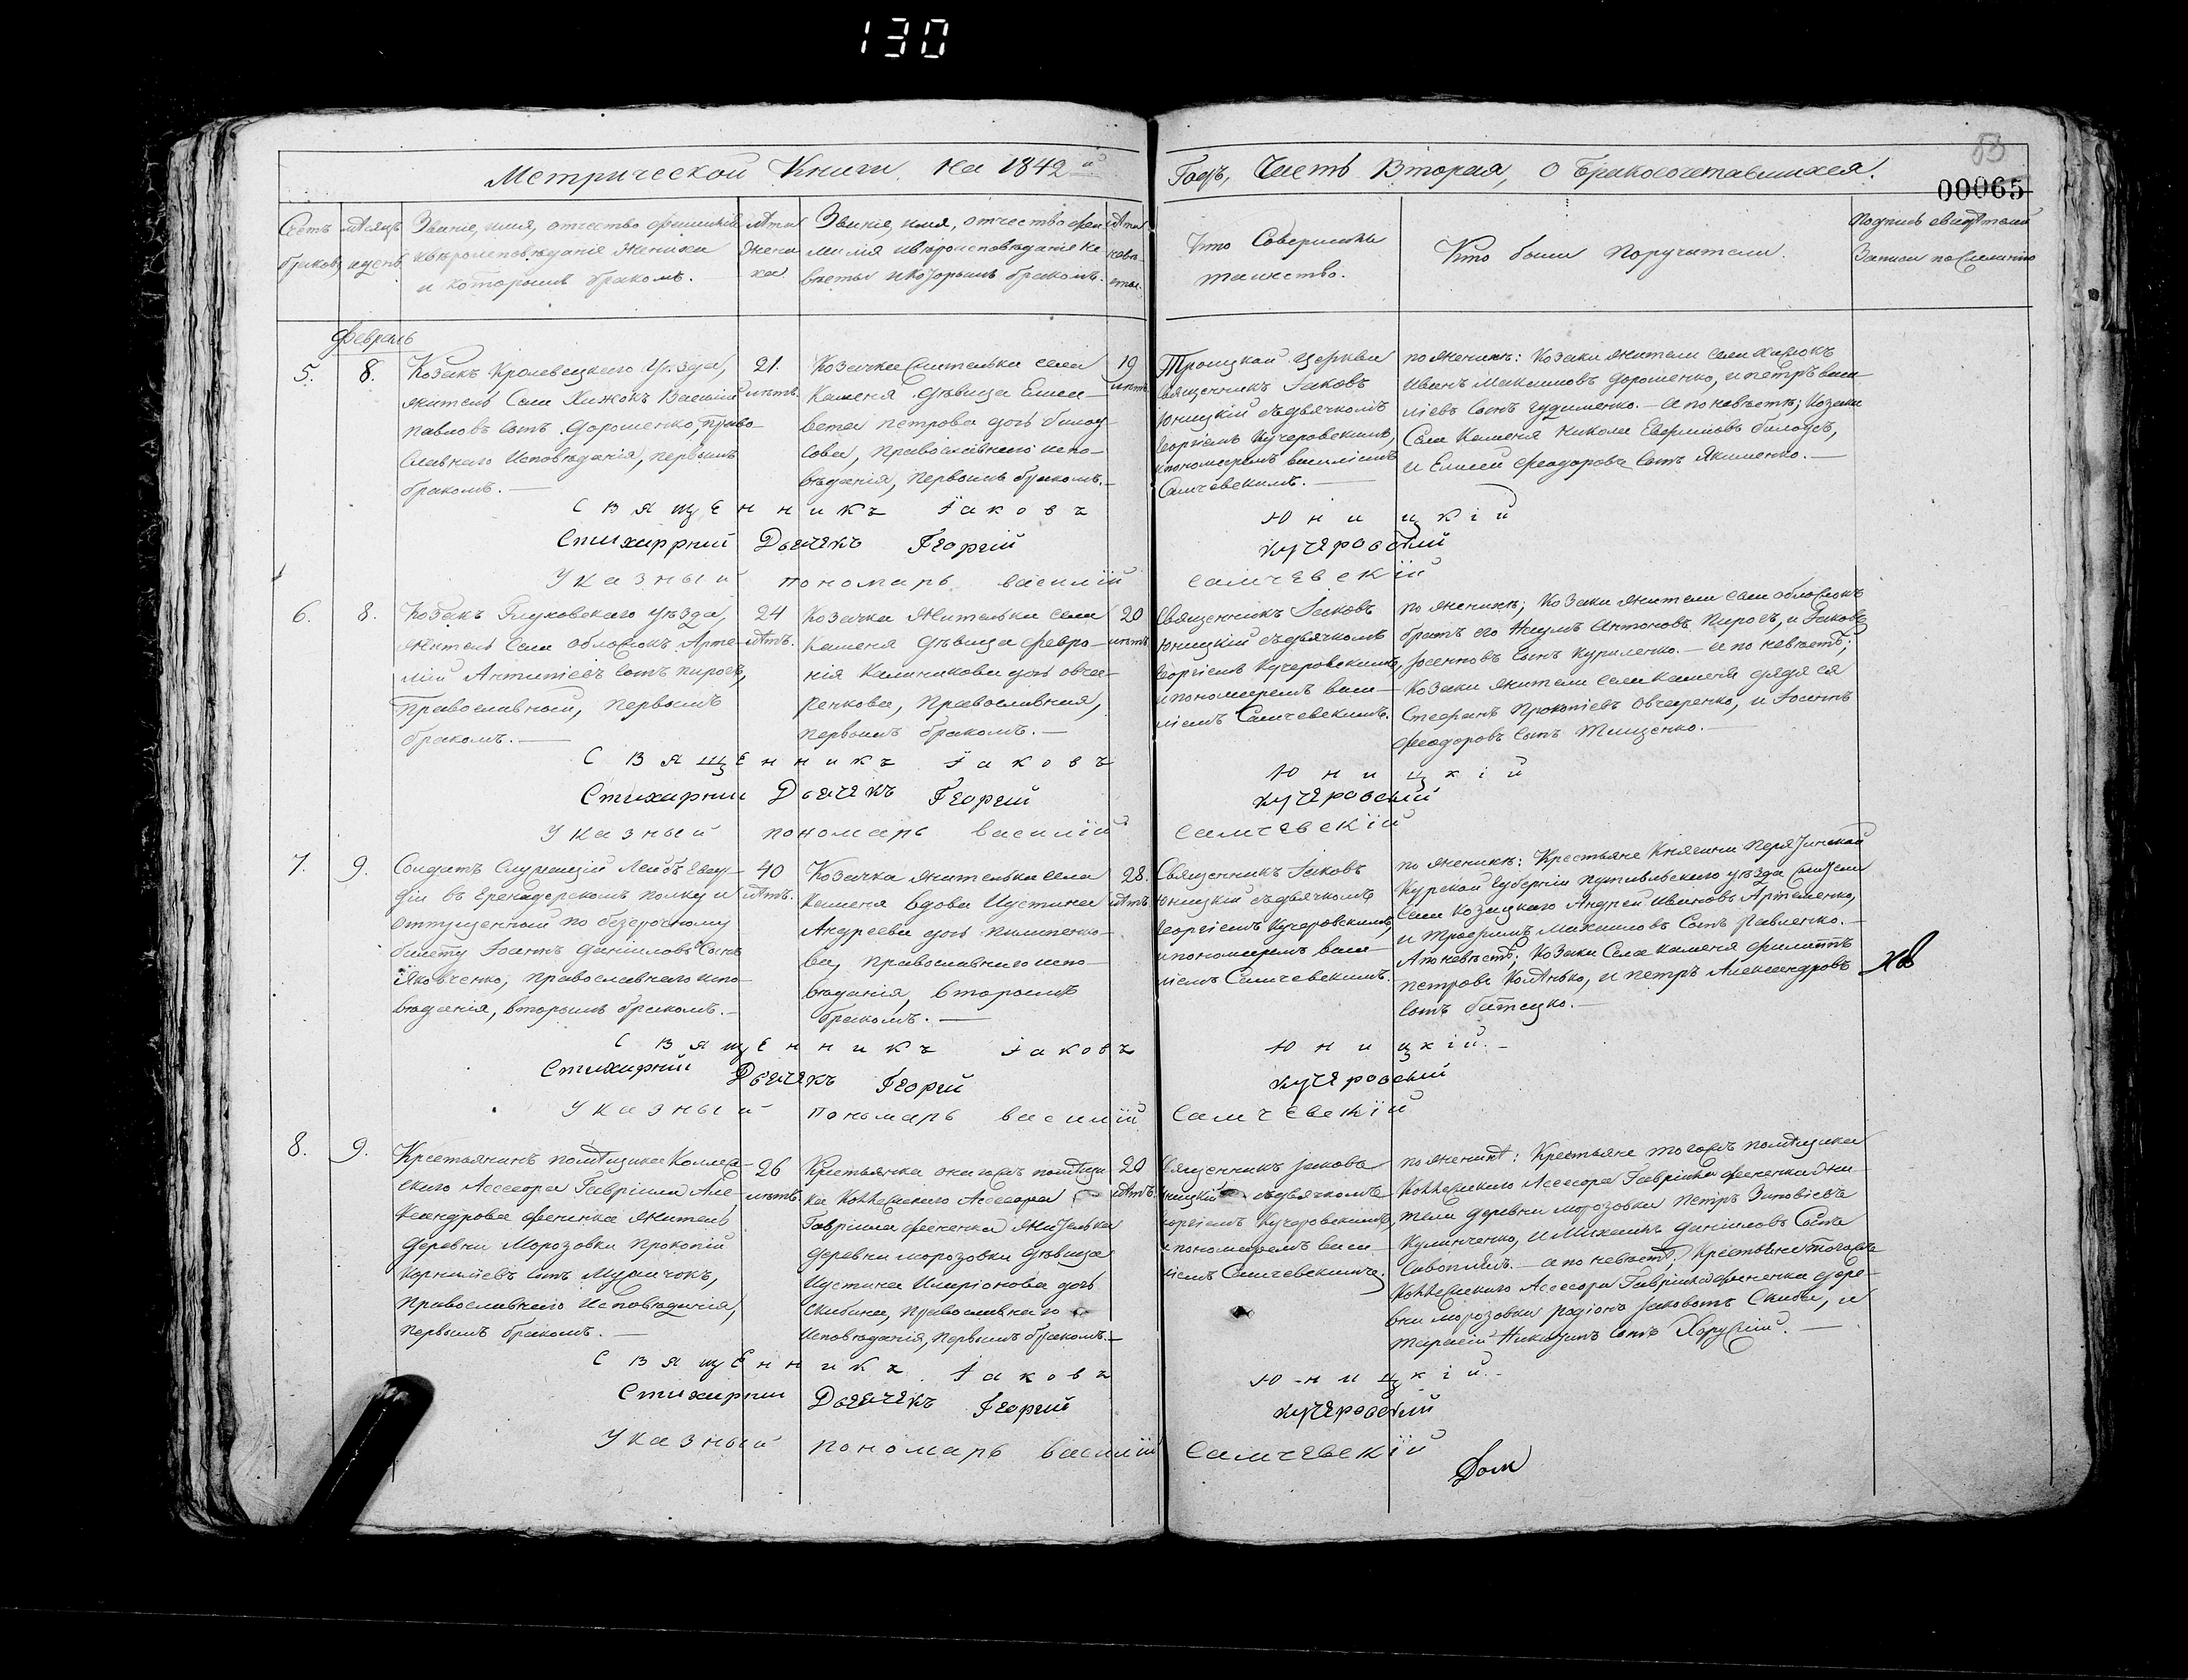 130
53
00065
Метрической Книги на 1842й Годъ, Часть Вторая, о Бракосочетавшихся.
Счетъ браковъ
мѣсяцъ и день
Званіе, имя, отчество фамилія
и вѣроисповѣданіе жениха
и которымъ бракомъ.
лѣта
жени
ха
Званіе, имя, отчество фа
милія и вѣроисповѣданіе не
вѣсты и которымъ бракомъ.
лѣта
невѣ-
сты.
Кто Совершалъ
таинство.
Кто были поручатели.
подпись свидѣтелей
Записи по желанію
Февраль
5.
8.
Козакъ Кролевецкаго Уѣзда,
житель Села Хижокъ Василій
Павловъ сынъ Дорошенко, право-
славнаго Исповѣданія, первымъ
бракомъ. —
21.
лѣтъ.
Козачка жителька села
Каменя дѣвица Елиса-
вета Петрова дочь билоу
сова, Православнаго испо-
вѣданія, Первымъ бракомъ. —
19
лѣтъ
Троицкой церкви
Священникъ Іаковъ
Юницкій съ дьячкомъ
Георгіемъ Кучеровскимъ,
и пономаремъ василіемъ
Самчевскимъ. —
по женихѣ: Козаки жители села хижокъ
Иванъ Максимовъ Дорошенко, и петръ васи-
ліевъ сынъ гудименко. — А по невѣстѣ; Козаки
Села Каменя Никола Евфимовъ билоусъ,
и Елисей Феодоровъ Сынъ Якименко. —
Священникъ Іаковъ Юницкій
Стихарный Дьячекъ Георгій Кучеровскій
Указный пономарь василій Самчевскій
6.
8.
Козакъ Глуховскаго уѣзда,
житель Села обложокъ Арте-
мій Антипіевъ сынъ пирогъ,
Православный, первымъ
бракомъ. —
24
лѣтъ.
Козачка Жителька села
Каменя дѣвица февро-
нія Калиникова дочь овча-
ренкова, Православная,
первымъ бракомъ. —
20
лѣтъ.
Священникъ Іаковъ
Юницкій съ дьячкомъ
Георгіемъ Кучеровскимъ,
и пономаремъ васи-
ліемъ Самчевскимъ.
по женихѣ; Козаки жители села обложокъ
братъ его Наумъ Антоновъ Пирогъ, и Іаковъ
Іосифовъ сынъ Куриленко. — а по невѣстѣ;
Козаки жители села каменя дядя ея
Стефанъ Прокопіевъ Овчаренко, и Іоаннъ
Феодоровъ сынъ Тищенко. —
Священникъ Іаковъ Юницкій
Стихарный Дьячекъ Георгій Кучеровскій
Указный пономарь василій Самчевскій
7.
9.
Солдатъ Служащій Лейбъ Гвар-
діи въ Гренадерскомъ полку и
отпущенный по безсрочному
билету Іоаннъ Даніиловъ Сынъ
Яковченко, православнаго испо-
вѣданія, вторымъ бракомъ. —
40
лѣтъ.
Козачка жителька села
Каменя вдова Иустина
Андреева дочь пилипенко-
ва, православнаго испо-
вѣданія, вторымъ
бракомъ. —
28.
лѣтъ
Священникъ Іаковъ
Юницкій съ дьячкомъ
Георгіемъ Кучеровскимъ,
и пономаремъ васи-
ліемъ Самчевскимъ.
по женихѣ: Крестьяне Княгини
Курской Губерніи путивльскаго уѣзда Жители
Села Козацкаго Андрей Ивановъ Артеменко,
и Трофимъ Михайловъ Сынъ Павленко. —
А по невѣстѣ; Козаки Села каменя филиппъ
петровъ Колѣнько, и петръ Александровъ
сынъ батецко. —
Священникъ Іаковъ Юницкій. —
Стихарный Дьячекъ Георгій Кучеровскій
Указный пономарь василій Самчевскій
8.
9.
Крестьянинъ помѣщика Коллеж-
скаго Ассесора Гавріила Але-
ксандрова фененка житель
деревни Морозовки Прокопій
Корниліевъ сынъ Мурачокъ,
Православнаго Исповѣданія,
первымъ бракомъ. —
26
лѣтъ.
Крестьянка онагожъ помѣщи
ка Коллежскаго Ассесора
Гавріила фененка жителька
деревни морозовки дѣвица
Иустина Иларіонова дочь
Скибина, православнаго
Исповѣданія, первымъ бракомъ. —
20
лѣтъ.
Священникъ Іаковъ
Юницкій съ дьячкомъ
Георгіемъ Кучеровскимъ,
и пономаремъ васи-
ліемъ Самчевскимъ.
по женихѣ: Крестьяне тогожъ помѣщика
Коллежскаго Ассесора Гавріила фененка жи-
тели деревни морозовки Петръ Зиновіевъ
Кулинченко, и Михаилъ Даніиловъ Сынъ
а по невѣстѣ; Крестьяне тогожъ
Коллежскаго Ассесора Гавріила фененка дере-
вни морозовки родіонъ Скиба, и
Тарасій Никитинъ сынъ Хоружій. —
Священникъ Іаковъ Юницкій. —
Стихарный Дьячекъ Георгій Кучеровскій
Указный пономарь василій Самчевскій